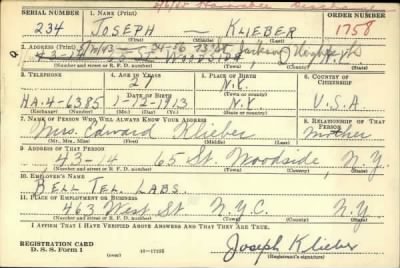 Honorable Discharge
SERIAL NUMBER 1. NAME (Print) ORDER NUMBER
234 JOSEPH — KLIEBER 1758
(First) (Middle) (Last)
2. ADDRESS (Print)
34-16 73 St Jackson Heights
43-14 65 St WOODSIDE, N.Y.
(Number and street or R. F. D. number) (Town) (County) (State)
3. TELEPHONE 4. AGE IN YEARS 5. PLACE OF BIRTH 6. COUNTRY OF CITIZENSHIP
27 N.Y.
DATE OF BIRTH (Town or county)
HA-4-6385 1-12-1913 N.Y. U.S.A.
(Exchange) (Number) (Mo.) (Day) (Yr.) (State or country)
7. NAME OF PERSON WHO WILL ALWAYS KNOW YOUR ADDRESS 8. RELATIONSHIP OF THAT PERSON
Mrs. Edward Klieber mother
(Mr., Mrs., Miss) (First) (Middle) (Last)
9. ADDRESS OF THAT PERSON
43-14 65 St. Woodside, N.Y.
(Number and street or R. F. D. number) (Town) (County) (State)
10. EMPLOYER'S NAME
BELL TEL. LABS.
11. PLACE OF EMPLOYMENT OR BUSINESS
463 West St N.Y.C. N.Y.
(Number and street or R. F. D. number) (Town) (County) (State)
I AFFIRM THAT I HAVE VERIFIED ABOVE ANSWERS AND THAT THEY ARE TRUE.
REGISTRATION CARD
D. S. S. Form 1 16—17105 Joseph Klieber
(Registrant's signature)